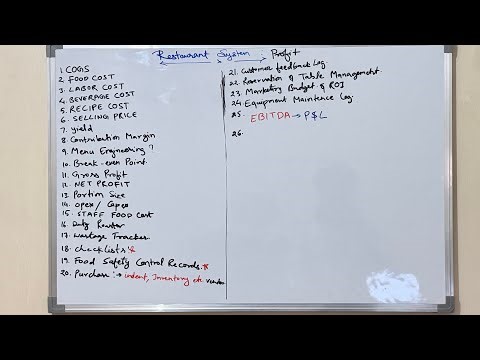 Restaurant System : Profit
1. COGS
2. FOOD COST
3. LABOR COST
4. BEVERAGE COST
5. RECIPE COST
6. SELLING PRICE
7. Yield
8. Contribution Margin
9. Menu Engineering ?
10. Break-even Point
11. Gross Profit
12. NET PROFIT
13. Portion Size
14. Opex / Capex
15. STAFF FOOD Cost
16. Duty Roster
17. Wastage Tracker
18. checklists *
19. Food Safety Control Records *
20. Purchase :→ indent, Inventory etc vendor
21. Customer feedback Log
22. Reservation & Table Management
23. Marketing Budget & ROI
24. Equipment Maintence Log
25. EBITDA → P$L
26.